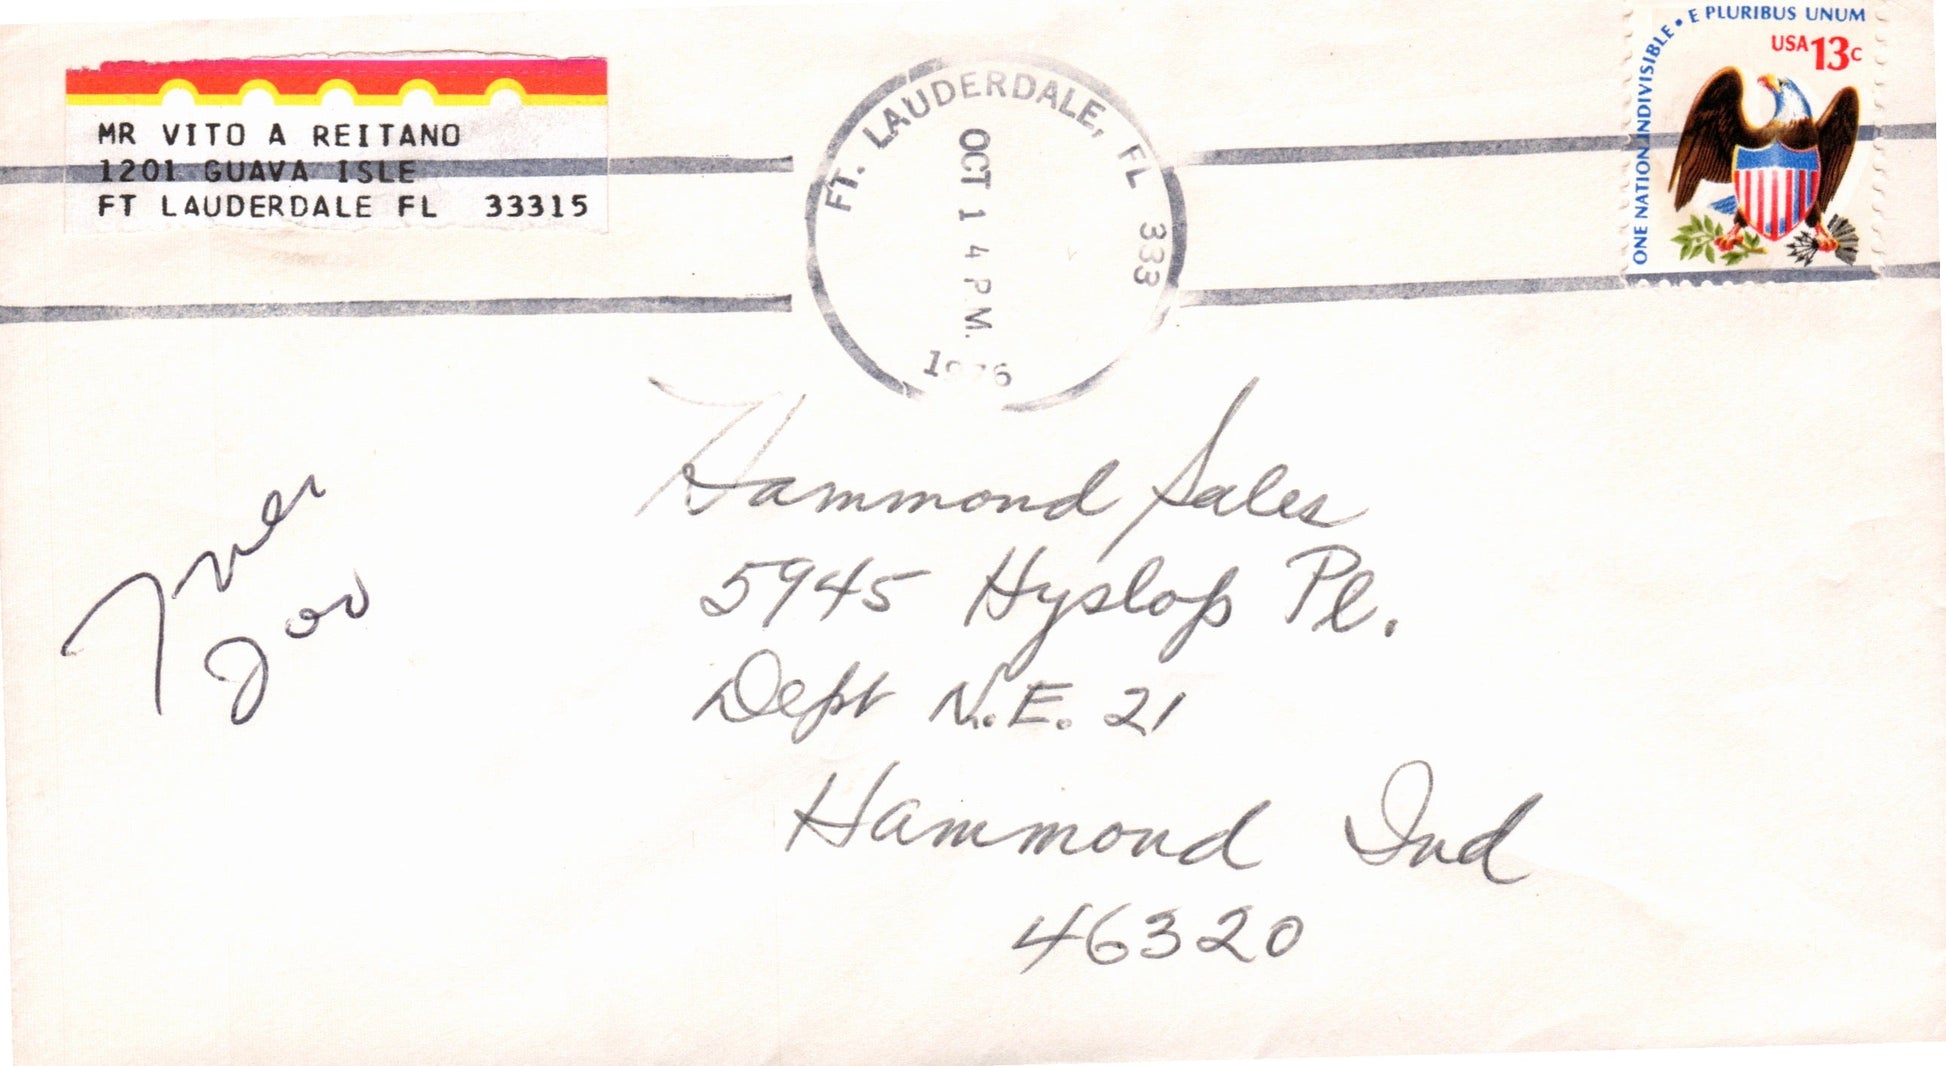 MR VITO A REITANO
1201 GUAVA ISLE
FT LAUDERDALE FL 33315
FT. LAUDERDALE, FL 333
OCT 1 4 PM.
1976
ONE NATION INDIVISIBLE • E PLURIBUS UNUM
USA 13c
Hammond Sales
5945 Hyslop Pl.
Dept N.E. 21
Hammond Ind
46320